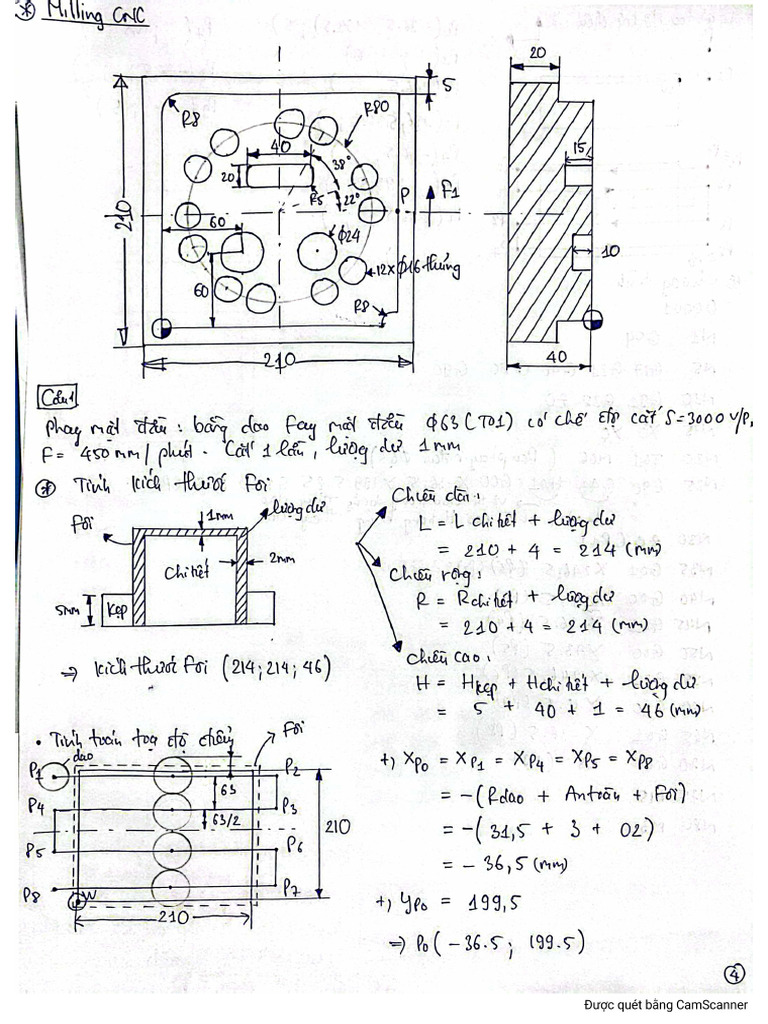 * Milling CNC
20
5
R8
R80
40
38°
15
20
R5
22°
P
F1
210
60
Φ24
10
12xΦ16 thủng
60
R8
210
40
Câu 1
Phay mặt đầu: bằng dao fay mặt đầu Φ63 (T01) có chế độ cắt S=3000 v/p,
F = 450 mm/phút. Cắt 1 lần, lượng dư 1mm
* Tính kích thước Fôi
Fôi
1mm
lượng dư
Chi tiết
2mm
5mm
Kẹp
Chiều dài:
L = L chi tiết + lượng dư
= 210 + 4 = 214 (mm)
Chiều rộng:
R = R chi tiết + lượng dư
= 210 + 4 = 214 (mm)
Chiều cao:
H = H kẹp + H chi tiết + lượng dư
= 5 + 40 + 1 = 46 (mm)
=> kích thước Fôi (214; 214; 46)
• Tính toán toạ độ điểm
Fôi
dao
P1
P2
63
P4
P3
63/2
210
P5
P6
P8
P7
W
210
+) XP0 = XP1 = XP4 = XP5 = XP8
= -(Rdao + An toàn + Fôi)
= -(31,5 + 3 + 02)
= -36,5 (mm)
+) YP0 = 199,5
=> P0 (-36.5; 199.5)
4
Được quét bằng CamScanner